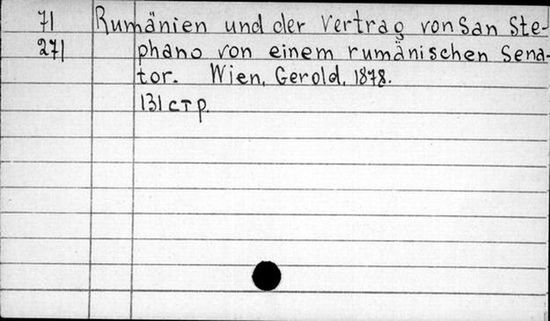 71 Rumänien und der Vertrag von San Ste-
271 phano von einem rumänischen Sena-
tor. Wien, Gerold, 1878.
131 стр.